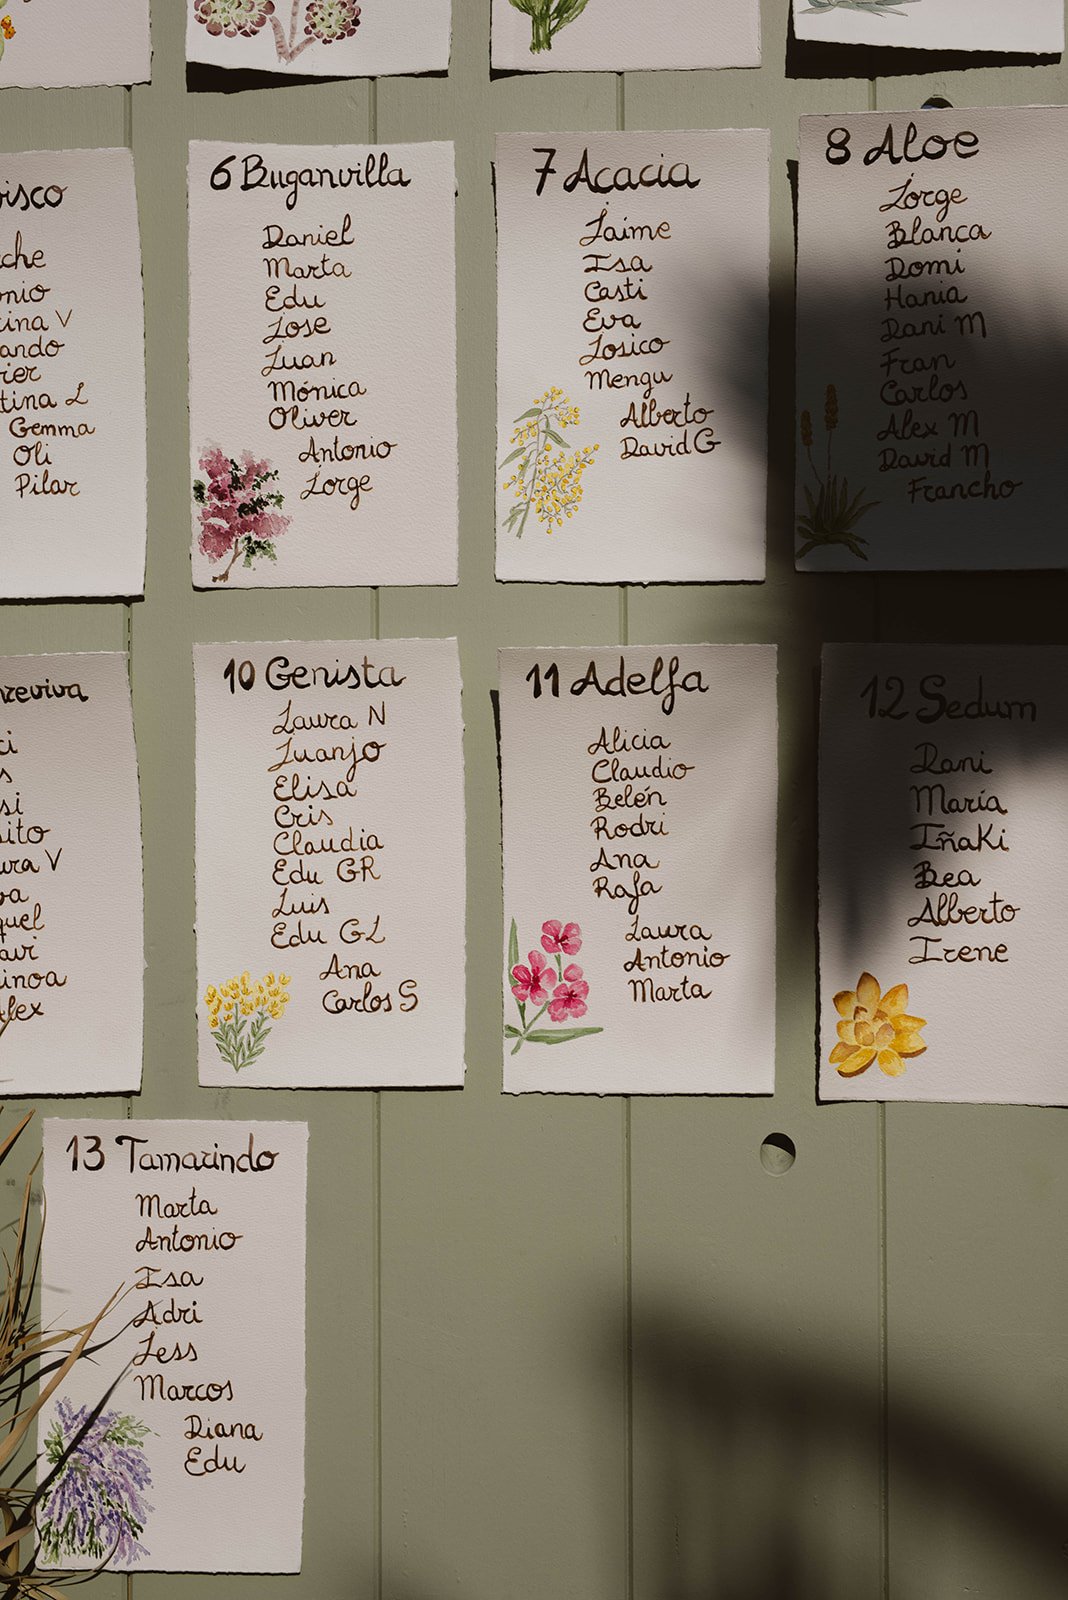 6 Buganvilla
Daniel
Marta
Edu
Jose
Juan
Mónica
Oliver
Antonio
Jorge
7 Acacia
Jaime
Isa
Casti
Eva
Josico
Mengu
Alberto
David G
8 Aloe
Jorge
Blanca
Domi
Hania
Dani M
Fran
Carlos
Alex M
David M
Francho
Gemma
Oli
Pilar
10 Genista
Laura N
Juanjo
Elisa
Cris
Claudia
Edu GR
Luis
Edu GL
Ana
Carlos S
11 Adelfa
Alicia
Claudio
Belén
Rodri
Ana
Rafa
Laura
Antonio
Marta
12 Sedum
Dani
María
Iñaki
Bea
Alberto
Irene
13 Tamarindo
Marta
Antonio
Isa
Adri
Jess
Marcos
Diana
Edu